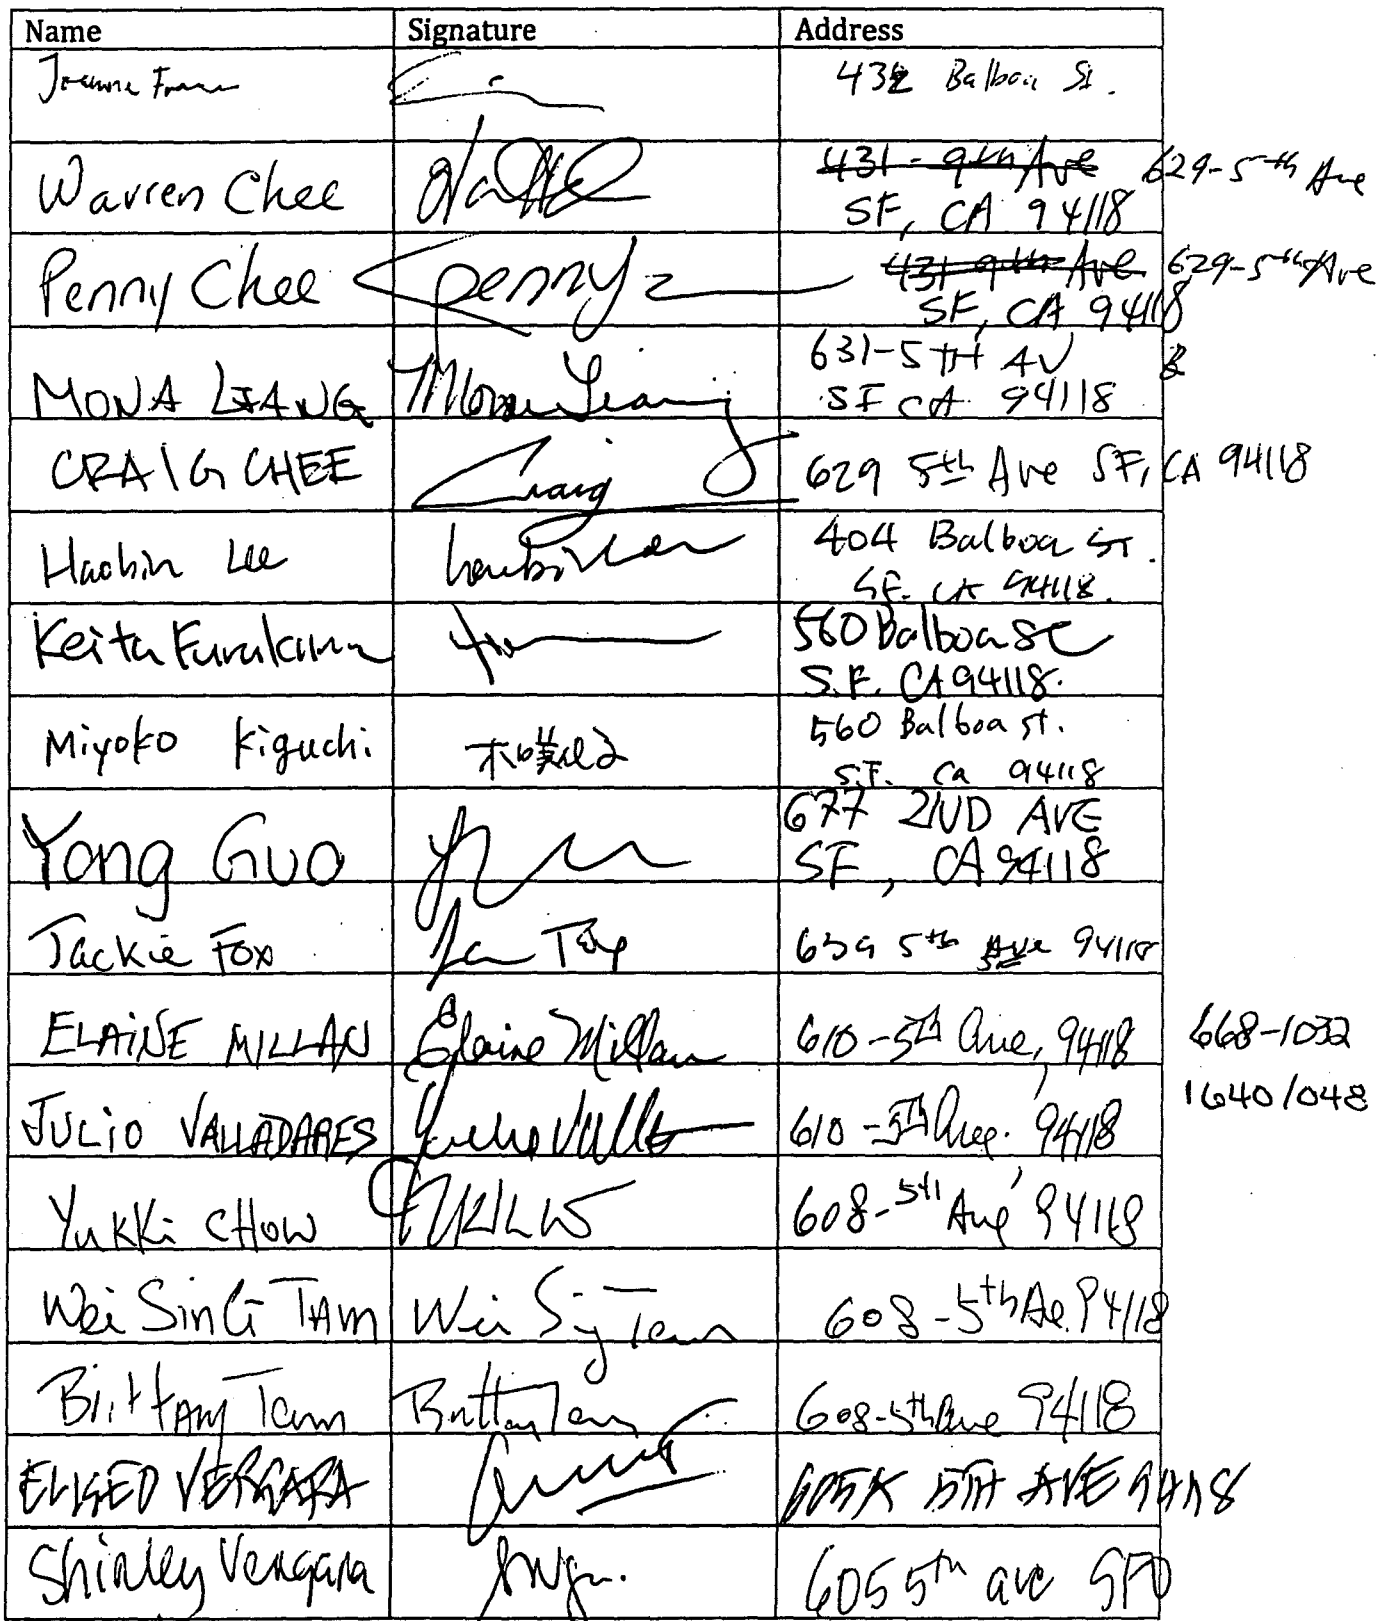 Name Signature Address
432 Balboa St.
Warren Chee 431 - 9th Ave 629-5th Ave
SF, CA 94118
Penny Chee Penny 431 9th Ave 629-5th Ave
SF, CA 94118
631-5TH AV
MONA LIANG Mona Liang SF CA 94118
CRAIG CHEE Craig 629 5th Ave SF, CA 94118
Haobin Lee 404 Balboa St.
SF. CA 94118.
Keita Furukawa 560 Balboa St
S.F. CA 94118.
Miyoko Kiguchi 560 Balboa st.
S.F. Ca 94118
Yong Guo 677 2ND AVE
SF, CA 94118
Jackie Fox 639 5th Ave 94118
ELAINE MILLAN Elaine Millan 610-5th Ave, 94118 668-1032
1640/048
JULIO VALLADARES 610-5th Ave. 94118
Yukki CHOW 608-5th Ave 94118
Wei SinG TAM Wei Sing Tam 608-5th Ave 94118
Brittany Tam Brittany Tam 608-5th Ave 94118
ELISEO VERGARA 5TH AVE 94118
Shirley Vergara 605 5th ave SF